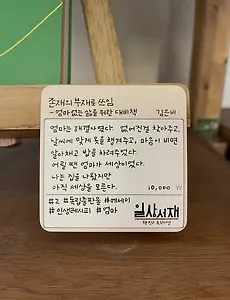 존재의 부재로 쓰임
- 엄마 없는 삶을 위한 대비책 김은비
엄마는 해결사였다. 없어진걸 찾아주고,
날씨에 맞게 옷을 챙겨주고, 마음이 비면
알아채고 밥을 차려주었다.
어릴 땐 엄마가 세상이었다.
나는 집을 나왔지만
아직 세상을 모른다. 10,000 ₩
#2 #독립출판물 #에세이
#인생레시피 #엄마
일상서재